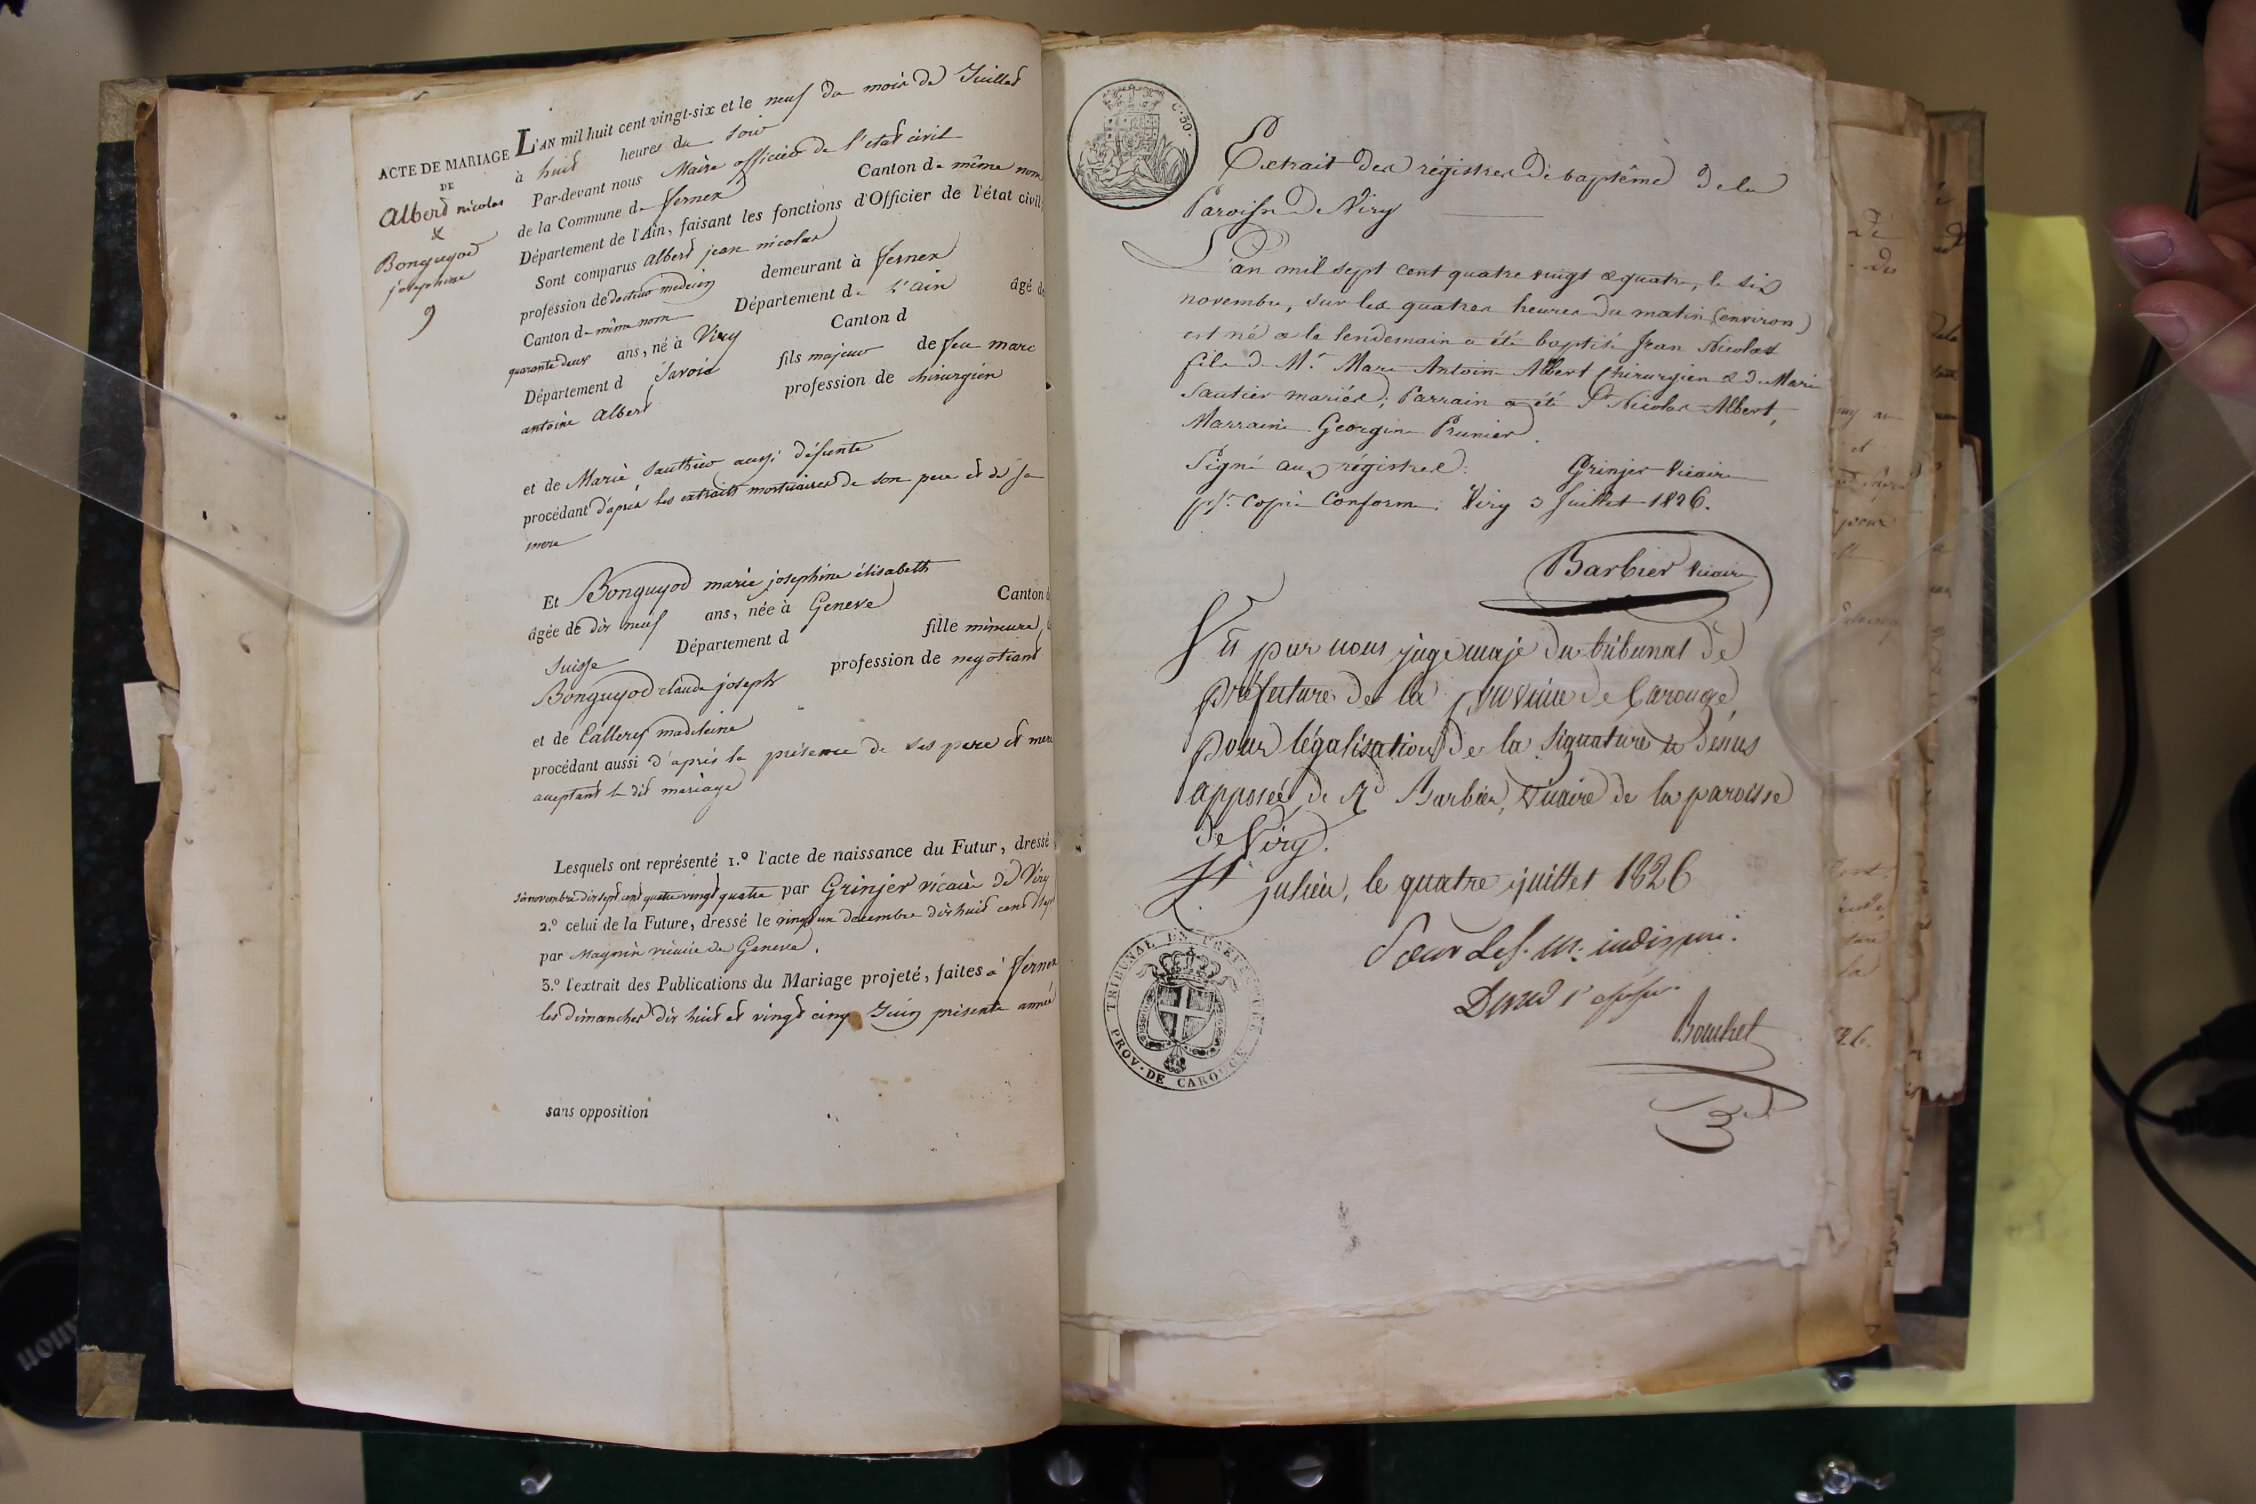 ACTE DE MARIAGE
DE
Albert nicolas
&
Bonguyod
josephine
9
L'AN mil huit cent vingt-six et le neuf du mois de Juillet
à huit heures du soir
Par-devant nous Maire officier de l'etat civil
de la Commune de fernex Canton de même nom
Département de l'Ain, faisant les fonctions d'Officier de l'état civil,
Sont comparus Albert jean nicolas
profession de docteur medecin demeurant à fernex
Canton de même nom Département de l'ain âgé de
quarante deux ans, né à Viry Canton d
Département d Savoie fils majeur de feu marc
antoine Albert profession de chirurgien
et de Marie Sauthier aussi défunte
procédant d'après les extraits mortuaires de son pere et de sa
mere
Et Bonguyod marie josephine élisabeth
âgée de dix neuf ans, née à Geneve Canton d
Suisse Département d fille mineure
Bonguyod claude joseph profession de negotiant
et de Callery madeleine
procédant aussi d'après la présence de ses pere et mere
acceptant le dit mariage
Lesquels ont représenté 1.º l'acte de naissance du Futur, dressé
six novembre dix sept cent quatre vingt quatre par Grinjer vicaire de Viry
2.º celui de la Future, dressé le vingt un decembre dix huit cent
par Magnin vicaire de Geneve,
3.º l'extrait des Publications du Mariage projeté, faites à fernex
les dimanches dix huit et vingt cinq Juin présente année
sans opposition
C. 50.
Extrait des régistres de baptême de la
Paroisse de Viry
L'an mil sept cent quatre vingt & quatre, le six
novembre, sur les quatres heures du matin (environ)
est né & le lendemain a été baptisé Jean Nicolas
fils de Mr. Marc Antoine Albert Chirurgien & de Marie
Sautier mariés; Parrain a été Sr Nicolas Albert,
Marraine Georgine Prunier.
Signé aux régistres: Grinjer Vicaire
pr. Copie Conforme. Viry 3 Juillet 1826.
Barbier Vicaire
Vu par nous juge maje du tribunal de
préfecture de la province de Carouge,
pour légalisation de la signature ci dessus
apposée de Rd Barbier, vicaire de la paroisse
de Viry.
St julien, le quatre juillet 1826
TRIBUNAL DE PREFECTURE
PROV. DE CAROUGE